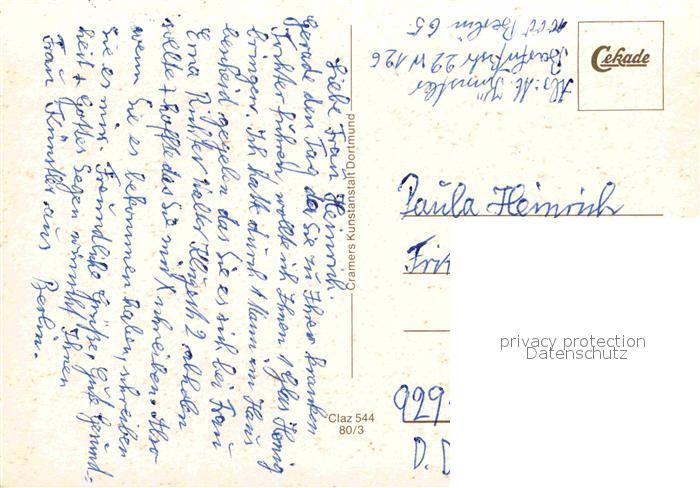 Liebe Frau Heinrich.
Gerade den Tag da Sie zu Ihrer kranken
Tochter fuhren, wollte ich Ihnen 1 Glas Honig
bringen. Ich hatte durch 1 Mann im Haus
bescheid gegeben das Sie es sich bei Frau
Erna Richter 2 abholen
wollte + hoffte das Sie mir schreiben. Also
wenn Sie es bekommen haben, schreiben
Sie es mir. Freundliche Grüße, Gute Gesund-
heit + Gottes Segen wünscht Ihnen
Frau Künstler aus Berlin.
Cramers Kunstanstalt Dortmund
Claz 544
80/3
Cekade
Abs: M. Künstler
22 W 126
1000 Berlin 65
Paula Heinrich
929
D. D
privacy protection
Datenschutz